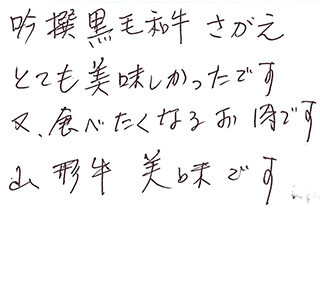 吟撰黒毛和牛さがえ
とても美味しかったです
又、食べたくなるお肉です
山形牛 美味です